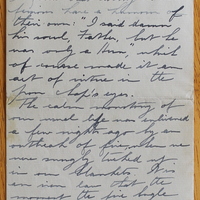 persons have a humour of
their own. "I said damn
his soul, Father, but he
was only a Hun", which
of course made it an
act of virtue in the
poor chap's eyes.
The calm monotony of
our usual life was enlivened
a few nights ago by an
outbreak of fire, when we
were snugly tucked up
in our blankets. It is
an iron law that the
moment the fire bugle